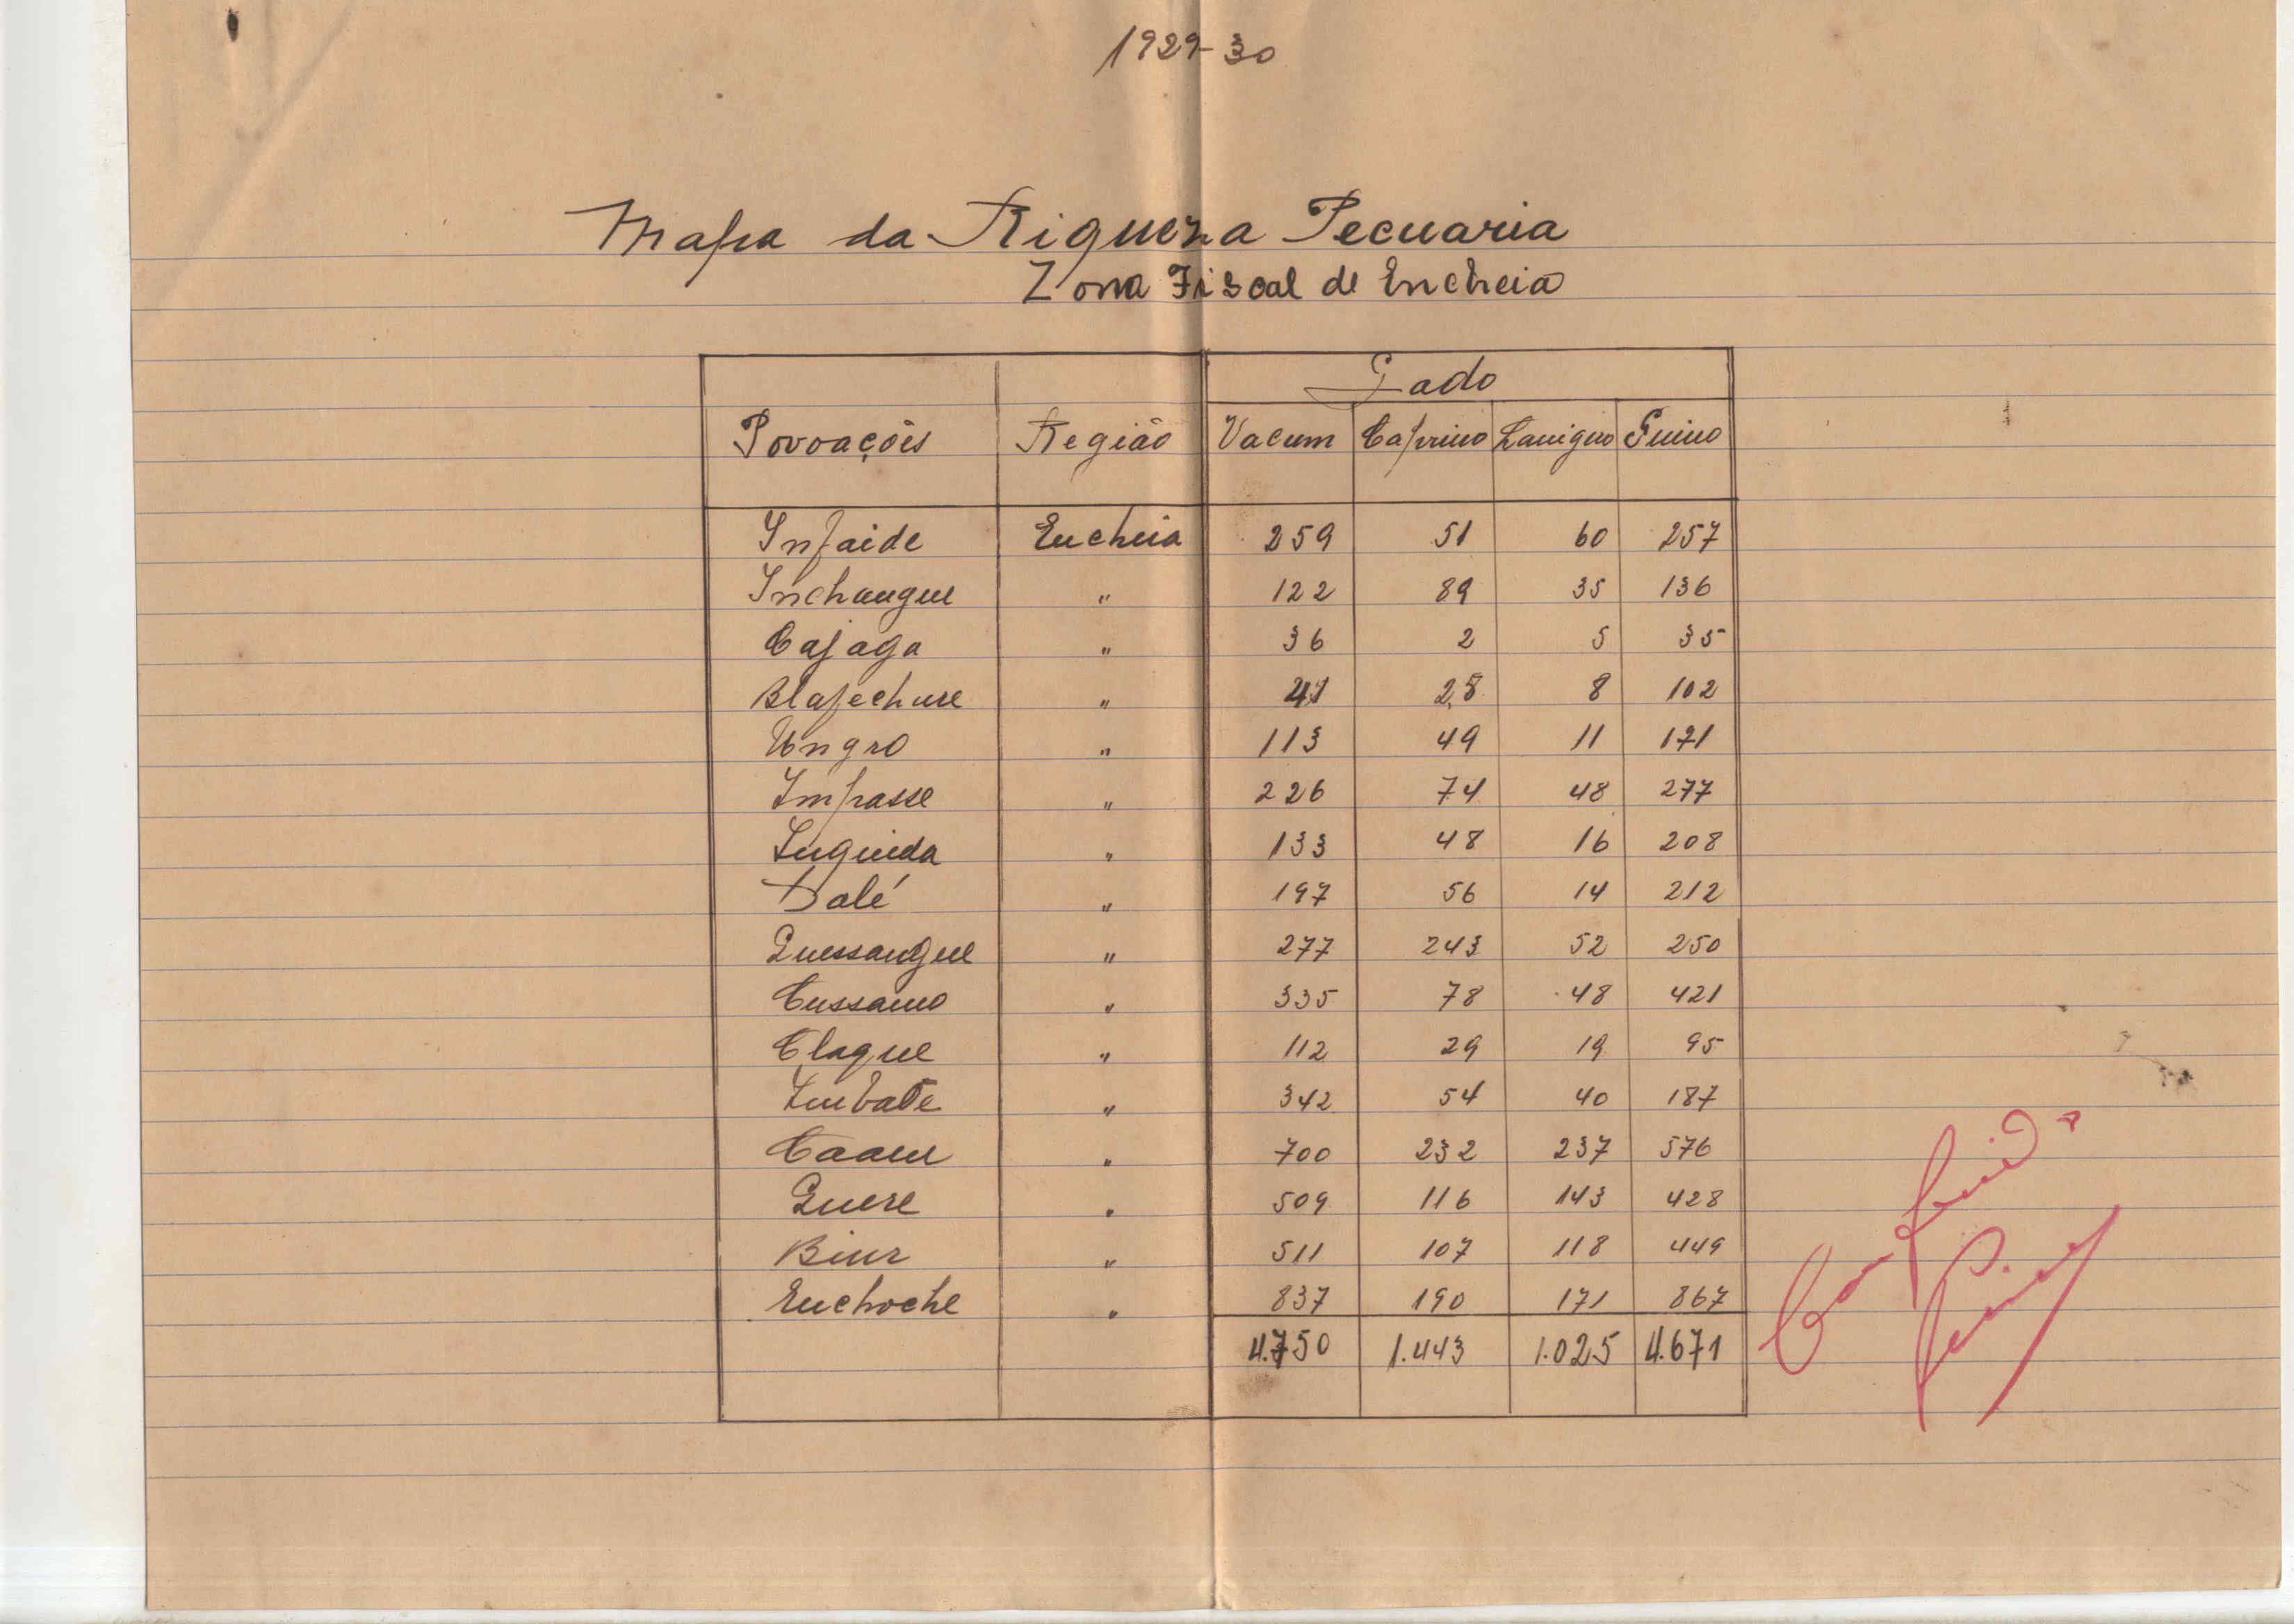 1929-30
Mapa da Riqueza Pecuaria
Zona Fiscal de Encheia
Gado
Povoações Região Vacum Caprino Lanigero Suino
Infaide Encheia 259 51 60 257
Inchangue " 122 89 35 136
Cajaga " 36 2 5 35
Blafechure " 41 25 8 102
Ungro " 113 49 11 171
Impasse " 226 74 48 277
Inguida " 133 48 16 208
Dalé " 197 56 14 212
Quessangue " 277 243 52 250
Cussano " 335 78 48 421
Claque " 112 29 19 95
Imbate " 342 54 40 187
Caaem " 700 232 237 576
Quere " 509 116 143 428
Biur " 511 107 118 449
Enchoche " 837 190 171 867
4.750 1.443 1.025 4.671